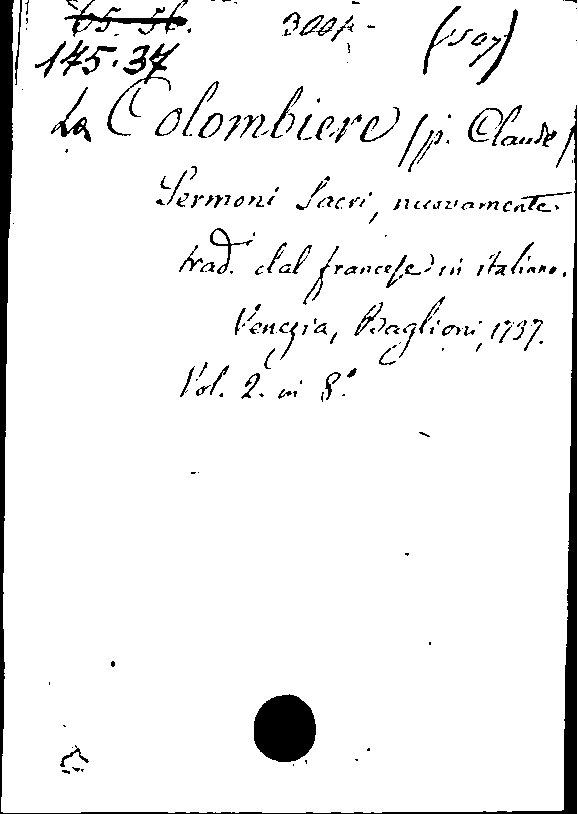 65. 56.
175.37
La Colombiere (p. Claude)
Sermoni Sacri, nuovamente
trad. dal francese in italiano.
Venezia, Baglioni, 1737.
Vol. 2. in 8.°